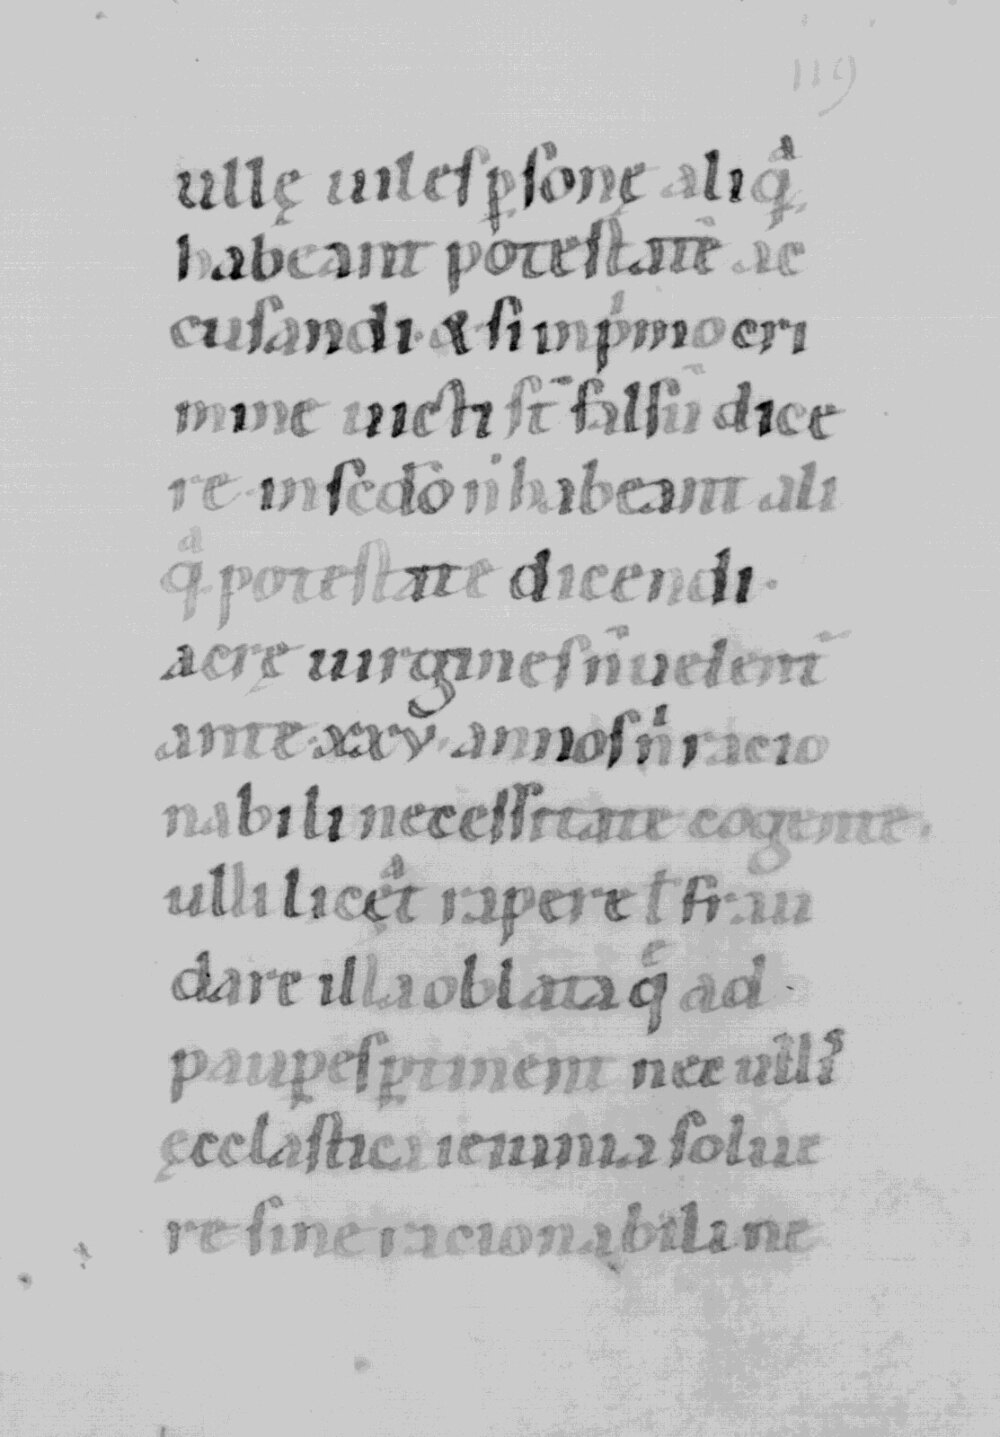 119
ullę uiles ꝑsonę aliqͣ
habeant potestatē ac
cusandi· & si in pͥmo cri
mine uicti st̄ falsū dice
re· in scdō n̄ habeant ali
qͣ potestate dicendi·
acrę uirgines n̄ uelent̄
ante· xxv· annos nͥ racio
nabili necessitate cogente·
ulli licęͣt rapere ł frau
dare illa oblata qͤ ad
pauꝑes ꝑtinent nec ulliꝰ
ęcclastica ieiunia solue
re sine racionabili ne